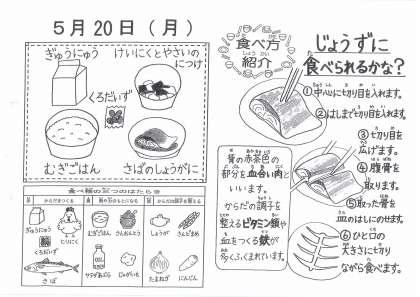 5月20日(月)
ぎゅうにゅう
けいにくとやさいの
につけ
くろだいず
むぎごはん
さばのしょうがに
食べ物の三つのはたらき
からだをつくる
熱や力のもとになる
からだの調子を整える
ぎゅうにゅう
とりにく
くろだいず
さば
むぎごはん
さんおんとう
サラダあぶら
じゃがいも
しょうが
さんどまめ
たまねぎ
にんじん
食べ方
紹介
じょうずに
食べられるかな?
①中心に切り目を入れます。
②はしまで切り目を入れます。
③切り目を
広げます。
④腹骨を
取ります。
⑤取った骨を
皿のはしにのせます。
⑥ひと口の
大きさに切り
ながら食べます。
背の赤茶色の
部分を血合い肉と
いいます。
からだの調子を
整えるビタミン類や
血をつくる鉄が
多くふくまれています。